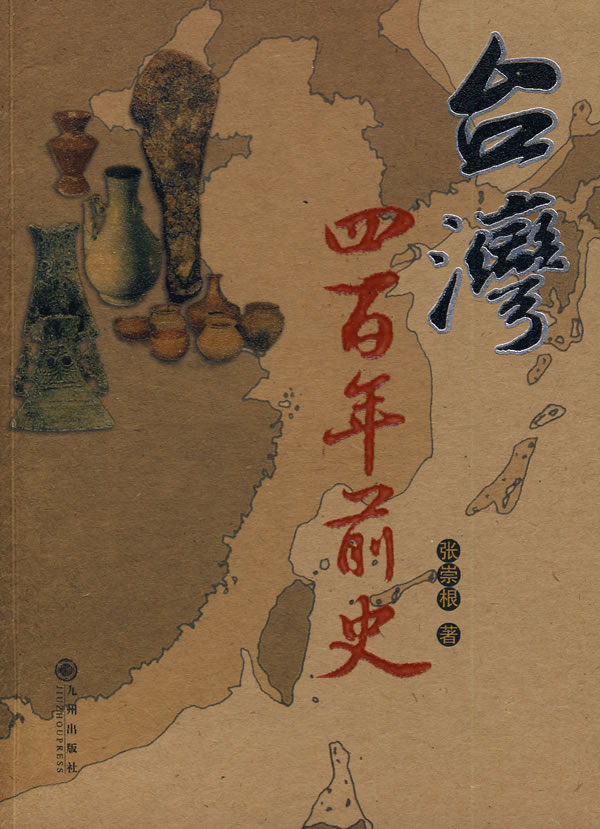 台灣
四百年前史
张崇根 著
九州出版社
JIUZHOUPRESS